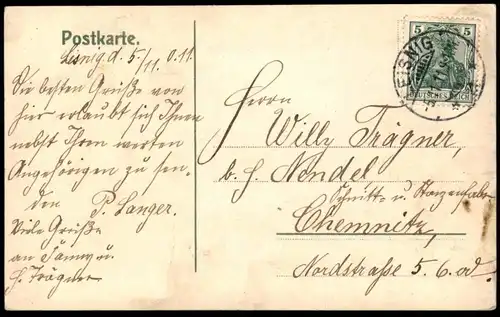 Postkarte.
Leisnig d. 5/11. 011.
Die besten Grüße von
hier erlaubt sich Ihnen
nebst Ihren werten
Angehörigen zu sen-
den P. Langer.
Viele Grüße
an u.
H. Trägner
5 5
DEUTSCHES REICH
LEISNIG
Herrn
Willy Trägner,
b. H. Nendel
Schnitt- u. Stanzenfabr.
Chemnitz,
Nordstraße 5. 6. od.